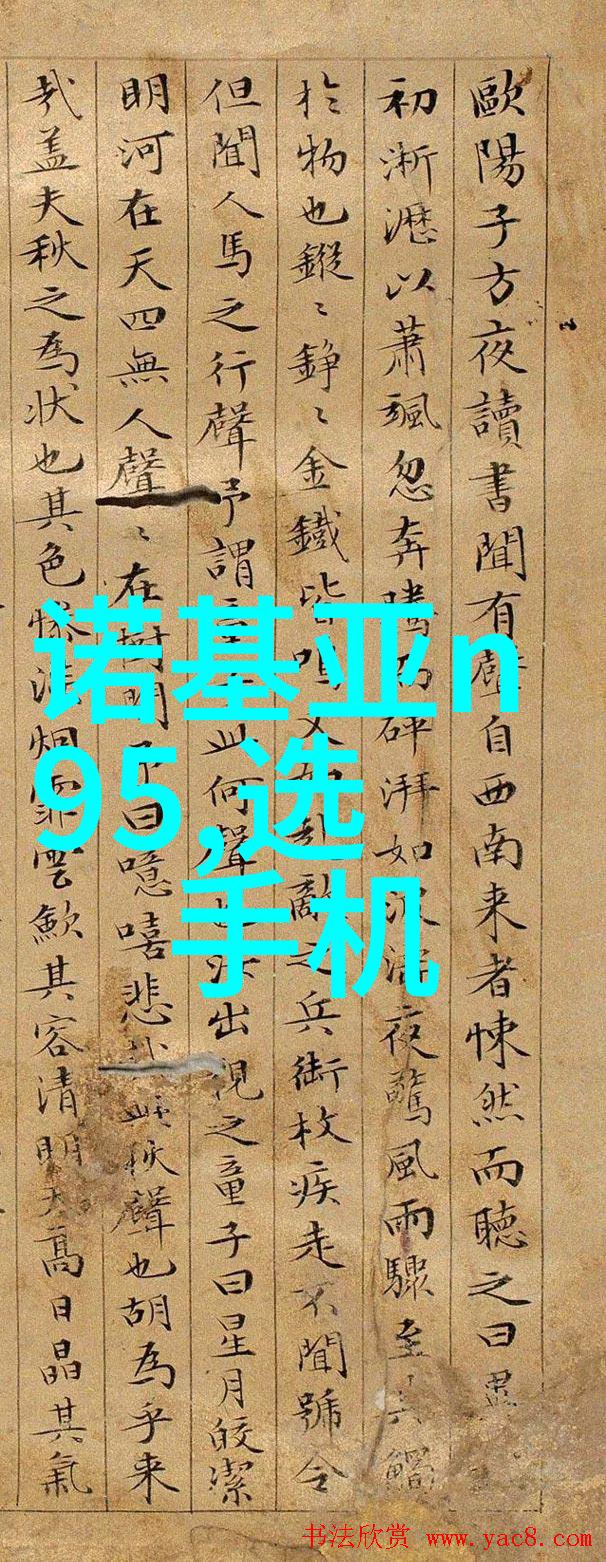 歐陽子方夜讀書聞有聲自西南来者悚然而聽之曰異
初淅瀝以蕭颯忽奔騰而砰湃如波濤夜驚風雨驟至其觸
於物也鏦〻錚〻金鐵皆鳴又如赴敵之兵銜枚疾走不聞號令
但聞人馬之行聲予謂此何聲也汝出視之童子曰星月皎潔
明河在天四無人聲〻在樹間予曰噫嘻悲秋聲也胡為乎来
哉盖夫秋之為状也其色惨淡烟霏雲歛其容清明天高日晶其氣
诺基亚n
95,选
手机
书法欣赏 www.yac8.com